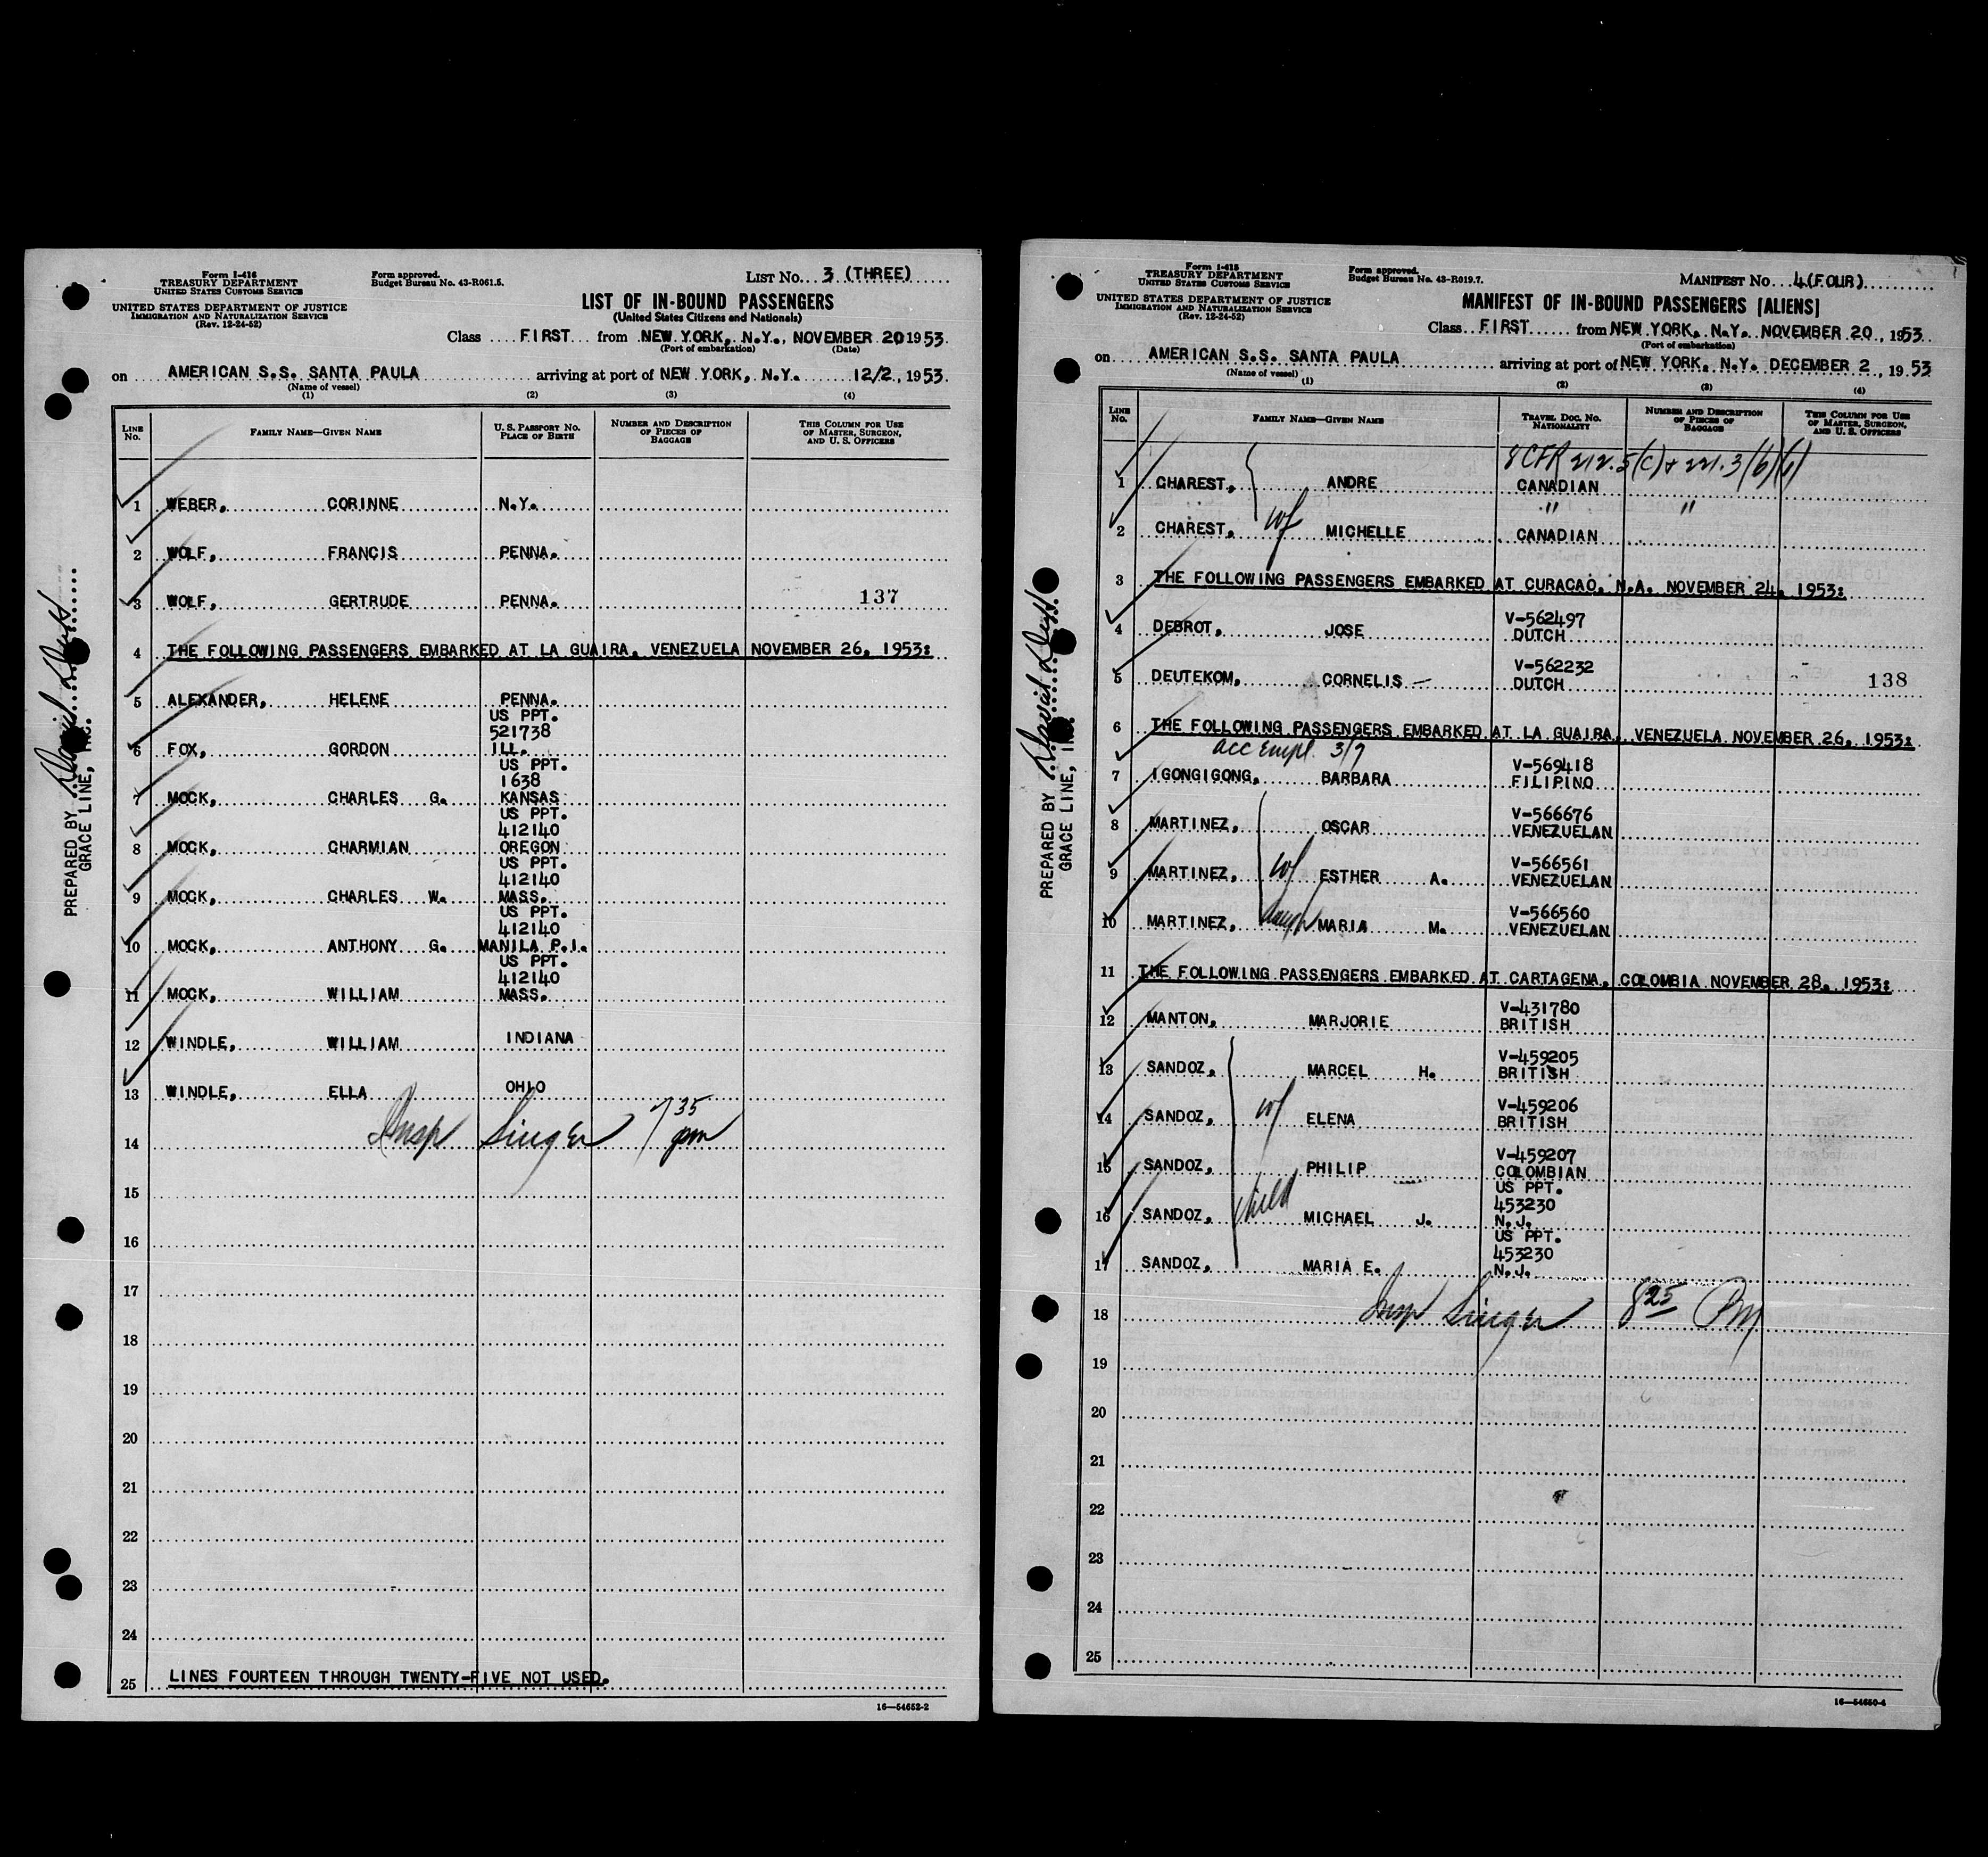 Form I-416
TREASURY DEPARTMENT
UNITED STATES CUSTOMS SERVICE
UNITED STATES DEPARTMENT OF JUSTICE
IMMIGRATION AND NATURALIZATION SERVICE
(Rev. 12-24-52)
Form approved.
Budget Bureau No. 43-R061.5.
LIST NO. 3 (THREE)
LIST OF IN-BOUND PASSENGERS
(United States Citizens and Nationals)
Class FIRST from NEW YORK, N.Y., NOVEMBER 20 1953.
(Port of embarkation) (Date)
on AMERICAN S.S. SANTA PAULA arriving at port of NEW YORK, N.Y. 12/2, 1953.
(Name of vessel)
(1) (2) (3) (4)
LINE NO. FAMILY NAME—GIVEN NAME U. S. PASSPORT NO. PLACE OF BIRTH NUMBER AND DESCRIPTION OF PIECES OF BAGGAGE THIS COLUMN FOR USE OF MASTER, SURGEON, AND U. S. OFFICERS
1 WEBER, CORINNE N.Y.
2 WOLF, FRANCIS PENNA.
3 WOLF, GERTRUDE PENNA. 137
4 THE FOLLOWING PASSENGERS EMBARKED AT LA GUAIRA, VENEZUELA NOVEMBER 26, 1953:
5 ALEXANDER, HELENE PENNA.
US PPT.
521738
6 FOX, GORDON ILL.
US PPT.
1638
7 MOCK, CHARLES G. KANSAS
US PPT.
412140
8 MOCK, CHARMIAN OREGON
US PPT.
412140
9 MOCK, CHARLES W. MASS.
US PPT.
412140
10 MOCK, ANTHONY G. MANILA P.I.
US PPT.
412140
11 MOCK, WILLIAM MASS.
12 WINDLE, WILLIAM INDIANA
13 WINDLE, ELLA OHIO
14 Insp Singer 7 35 pm
15
16
17
18
19
20
21
22
23
24
25 LINES FOURTEEN THROUGH TWENTY-FIVE NOT USED.
16—54652-2
PREPARED BY
GRACE LINE, INC.
Form I-415
TREASURY DEPARTMENT
UNITED STATES CUSTOMS SERVICE
UNITED STATES DEPARTMENT OF JUSTICE
IMMIGRATION AND NATURALIZATION SERVICE
(Rev. 12-24-52)
Form approved.
Budget Bureau No. 43-R019.7.
MANIFEST NO. 4 (FOUR)
MANIFEST OF IN-BOUND PASSENGERS [ALIENS]
Class FIRST from NEW YORK, N.Y. NOVEMBER 20, 1953.
(Port of embarkation)
on AMERICAN S.S. SANTA PAULA arriving at port of NEW YORK, N.Y. DECEMBER 2, 1953
(Name of vessel)
(1) (2) (3) (4)
LINE NO. FAMILY NAME—GIVEN NAME TRAVEL DOC. NO. NATIONALITY NUMBER AND DESCRIPTION OF PIECES OF BAGGAGE THIS COLUMN FOR USE OF MASTER, SURGEON, AND U. S. OFFICERS
8 CFR 212.5(c) + 221.3(b)(1)
1 CHAREST, ANDRE CANADIAN
" "
2 CHAREST, wf MICHELLE CANADIAN
3 THE FOLLOWING PASSENGERS EMBARKED AT CURACAO, N.A. NOVEMBER 24, 1953:
V-562497
4 DEBROT, JOSE DUTCH
V-562232
5 DEUTEKOM, CORNELIS — DUTCH 138
6 THE FOLLOWING PASSENGERS EMBARKED AT LA GUAIRA, VENEZUELA NOVEMBER 26, 1953:
acc Empl. 3/7
V-569418
7 IGONGIGONG, BARBARA FILIPINO
V-566676
8 MARTINEZ, OSCAR VENEZUELAN
V-566561
9 MARTINEZ, wf ESTHER A. VENEZUELAN
V-566560
10 MARTINEZ, daugh MARIA M. VENEZUELAN
11 THE FOLLOWING PASSENGERS EMBARKED AT CARTAGENA, COLOMBIA NOVEMBER 28, 1953:
V-431780
12 MANTON, MARJORIE BRITISH
V-459205
13 SANDOZ, MARCEL H. BRITISH
V-459206
14 SANDOZ, wf ELENA BRITISH
V-459207
15 SANDOZ, PHILIP COLOMBIAN
US PPT.
453230
16 SANDOZ, child MICHAEL J. N.J.
US PPT.
453230
17 SANDOZ, MARIA E. N.J.
18 Insp Singer 8 25 PM
19
20
21
22
23
24
25
16—54650-4
PREPARED BY
GRACE LINE, INC.